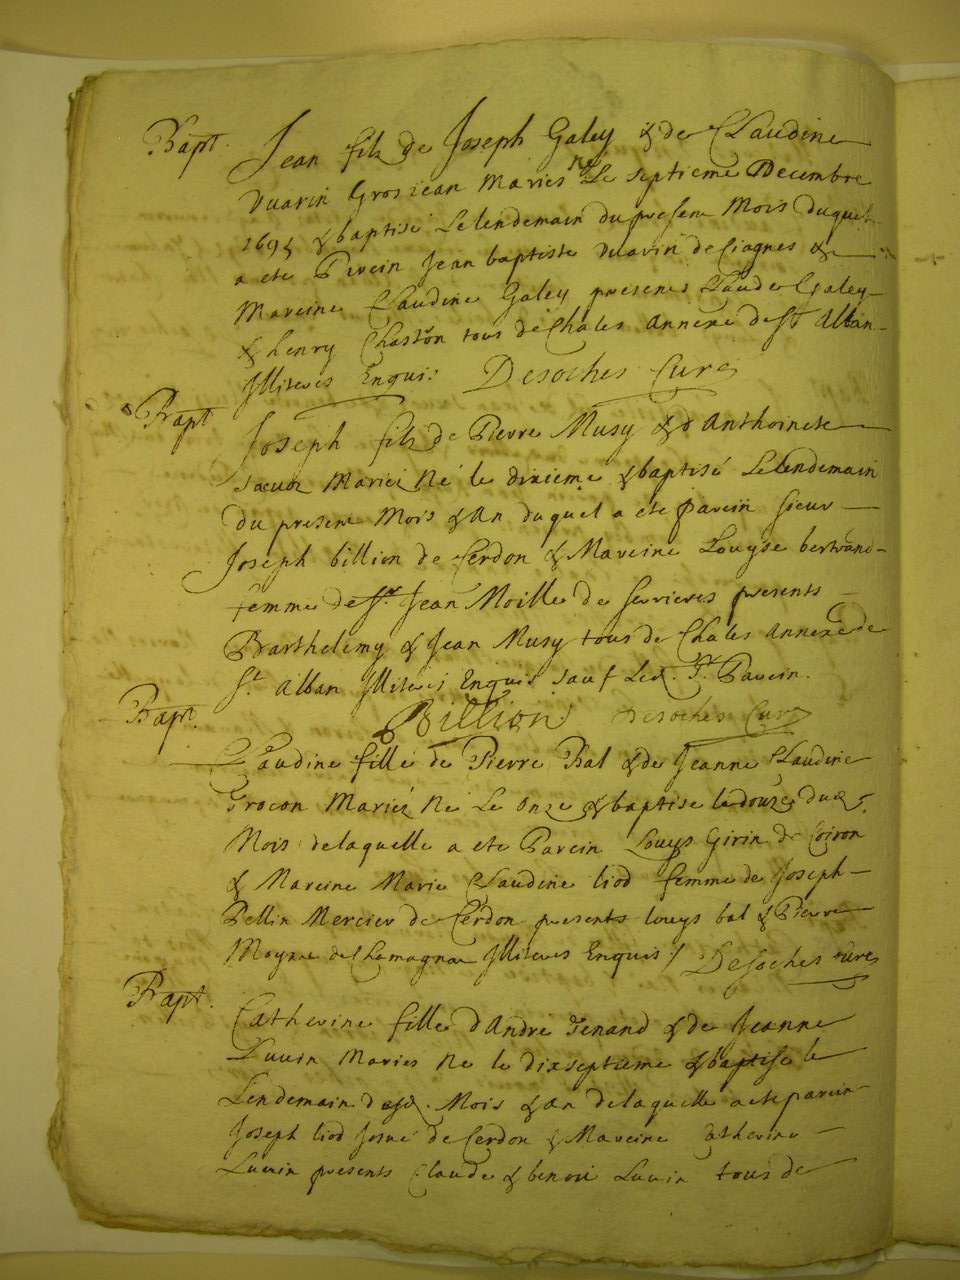 Bapt. Jean filz de Joseph Galey & de Claudine
Vuarin Grosjean Mariés né Le septieme Decembre
1695 & baptisé Le lendemain du presene Mois duquel
a ete Parein Jean baptiste Vuarin de Ciagnes &
Mareine Claudine Galey presents Claude Galey
& henry Chaston tous de Chales Annexe de St Alban
Illiteres Enquis. Desoches Curé
Bapt Joseph filz de Pierre Musy & d Anthoinete
Mariez Né le dixieme & baptisé Le lendemain
du presene Mois & An duquel a ete Parein sieur
Joseph billion de Cerdon & Mareine Louyse bertrand
femme de Sr. Jean Moille de serrieres presents
Barthelemy & Jean Musy tous de Chales Annexe de
St. Alban Illiteres Enquis sauf Led. Sr. Parein.
Billion Desoches Curé
Bapt. Claudine fille de Pierre Bal & de Jeanne Claudine
Grocon Mariéz Né Le onze & baptise le douze dud.
Mois delaquelle a ete Parein Louys Girin de Coiron
& Mareine Marie Claudine liod femme de Joseph
Pellin Mercier de Cerdon presents louys bal & Pierre
Moyne de Chamagnae Illiteres Enquis / Desoches Curé
Bapt. Catherine fille d'André Tenand & de Jeanne
Luuin Maries Né le dixseptieme & baptise le
Lendemain desd. Mois & an delaquelle a ete parein
Joseph liod Josué de Cerdon & Mareine Catherine
Luuin presents Claude & benoit Luuin tous de